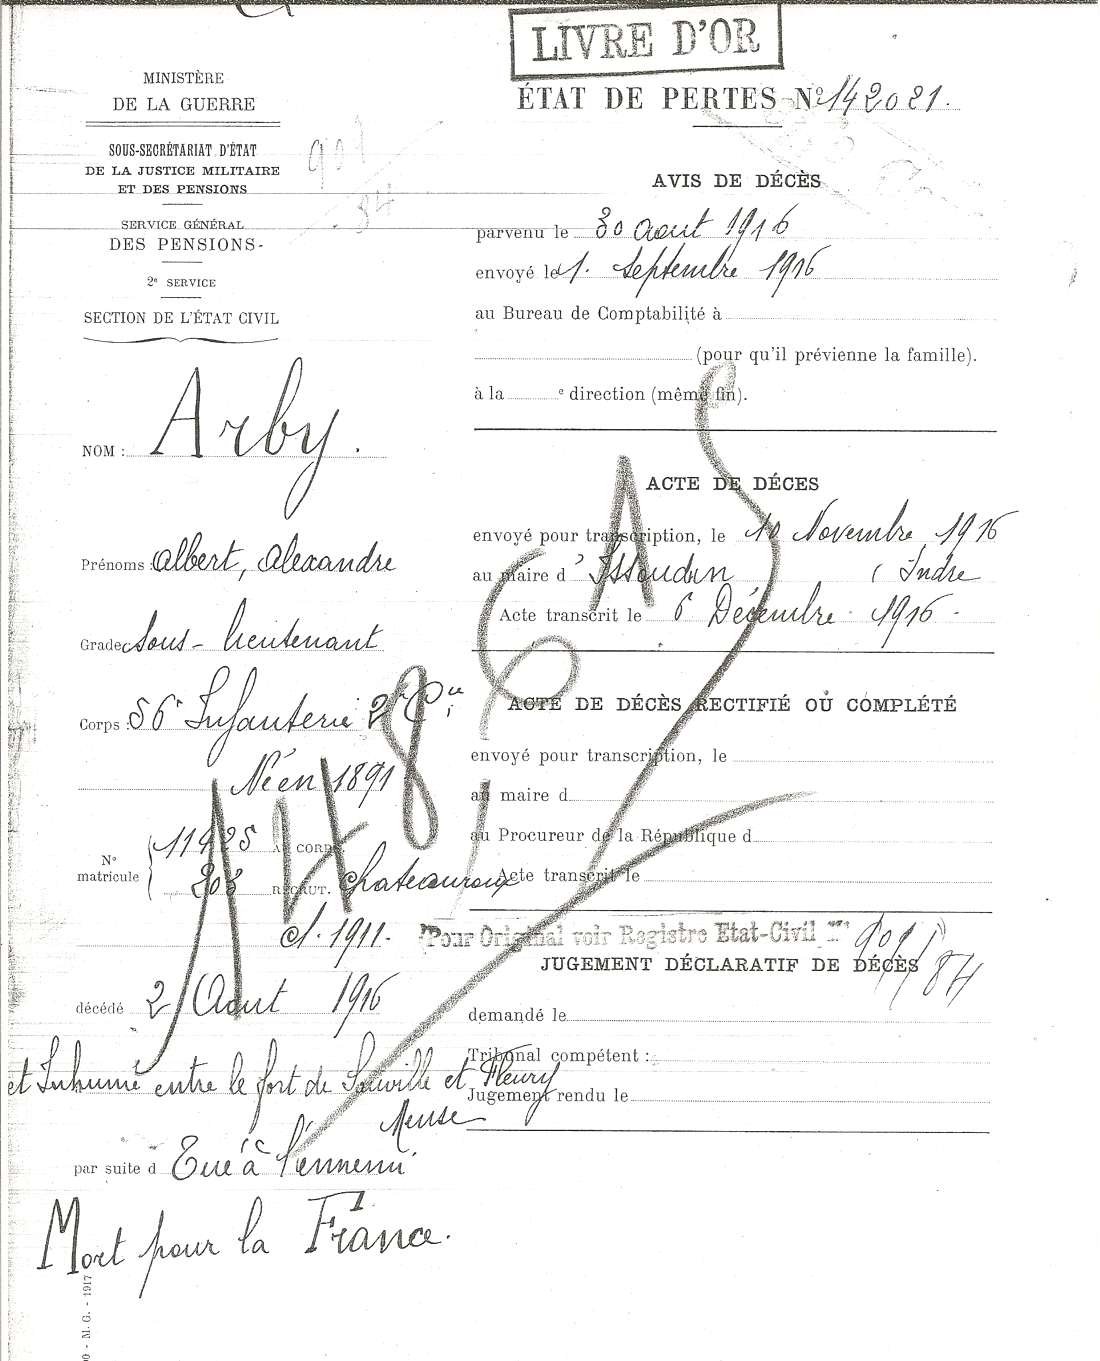 LIVRE D'OR
ÉTAT DE PERTES Nº 142021.
MINISTÈRE
DE LA GUERRE
SOUS-SECRÉTARIAT D'ÉTAT
DE LA JUSTICE MILITAIRE
ET DES PENSIONS
SERVICE GÉNÉRAL
DES PENSIONS
2e SERVICE
SECTION DE L'ÉTAT CIVIL
NOM : Arby.
Prénoms : Albert, Alexandre
Grade Sous-lieutenant
Corps : 56e Infanterie 2e Cie
Né en 1891
Nº matricule
11425 AU CORPS.
203 RECRUT. Chateauroux
cl. 1911.
décédé 2 Aout 1916
et Inhumé entre le fort de Souville et Fleury
Meuse
par suite d Tué à l'ennemi
Mort pour la France.
AVIS DE DÉCÈS
parvenu le 30 Aout 1916
envoyé le 1. Septembre 1916
au Bureau de Comptabilité à
(pour qu'il prévienne la famille).
à la e direction (même fin).
ACTE DE DÉCES
envoyé pour transcription, le 10 Novembre 1916
au maire d'Issoudun (Indre
Acte transcrit le 6 Décembre 1916.
ACTE DE DÉCÈS RECTIFIÉ OU COMPLÉTÉ
envoyé pour transcription, le
au maire d
au Procureur de la République d
Acte transcrit le
Pour Original voir Registre Etat-Civil Nº 907/84
JUGEMENT DÉCLARATIF DE DÉCÈS
demandé le
Tribunal compétent :
Jugement rendu le
907
84
- M. G. - 1917